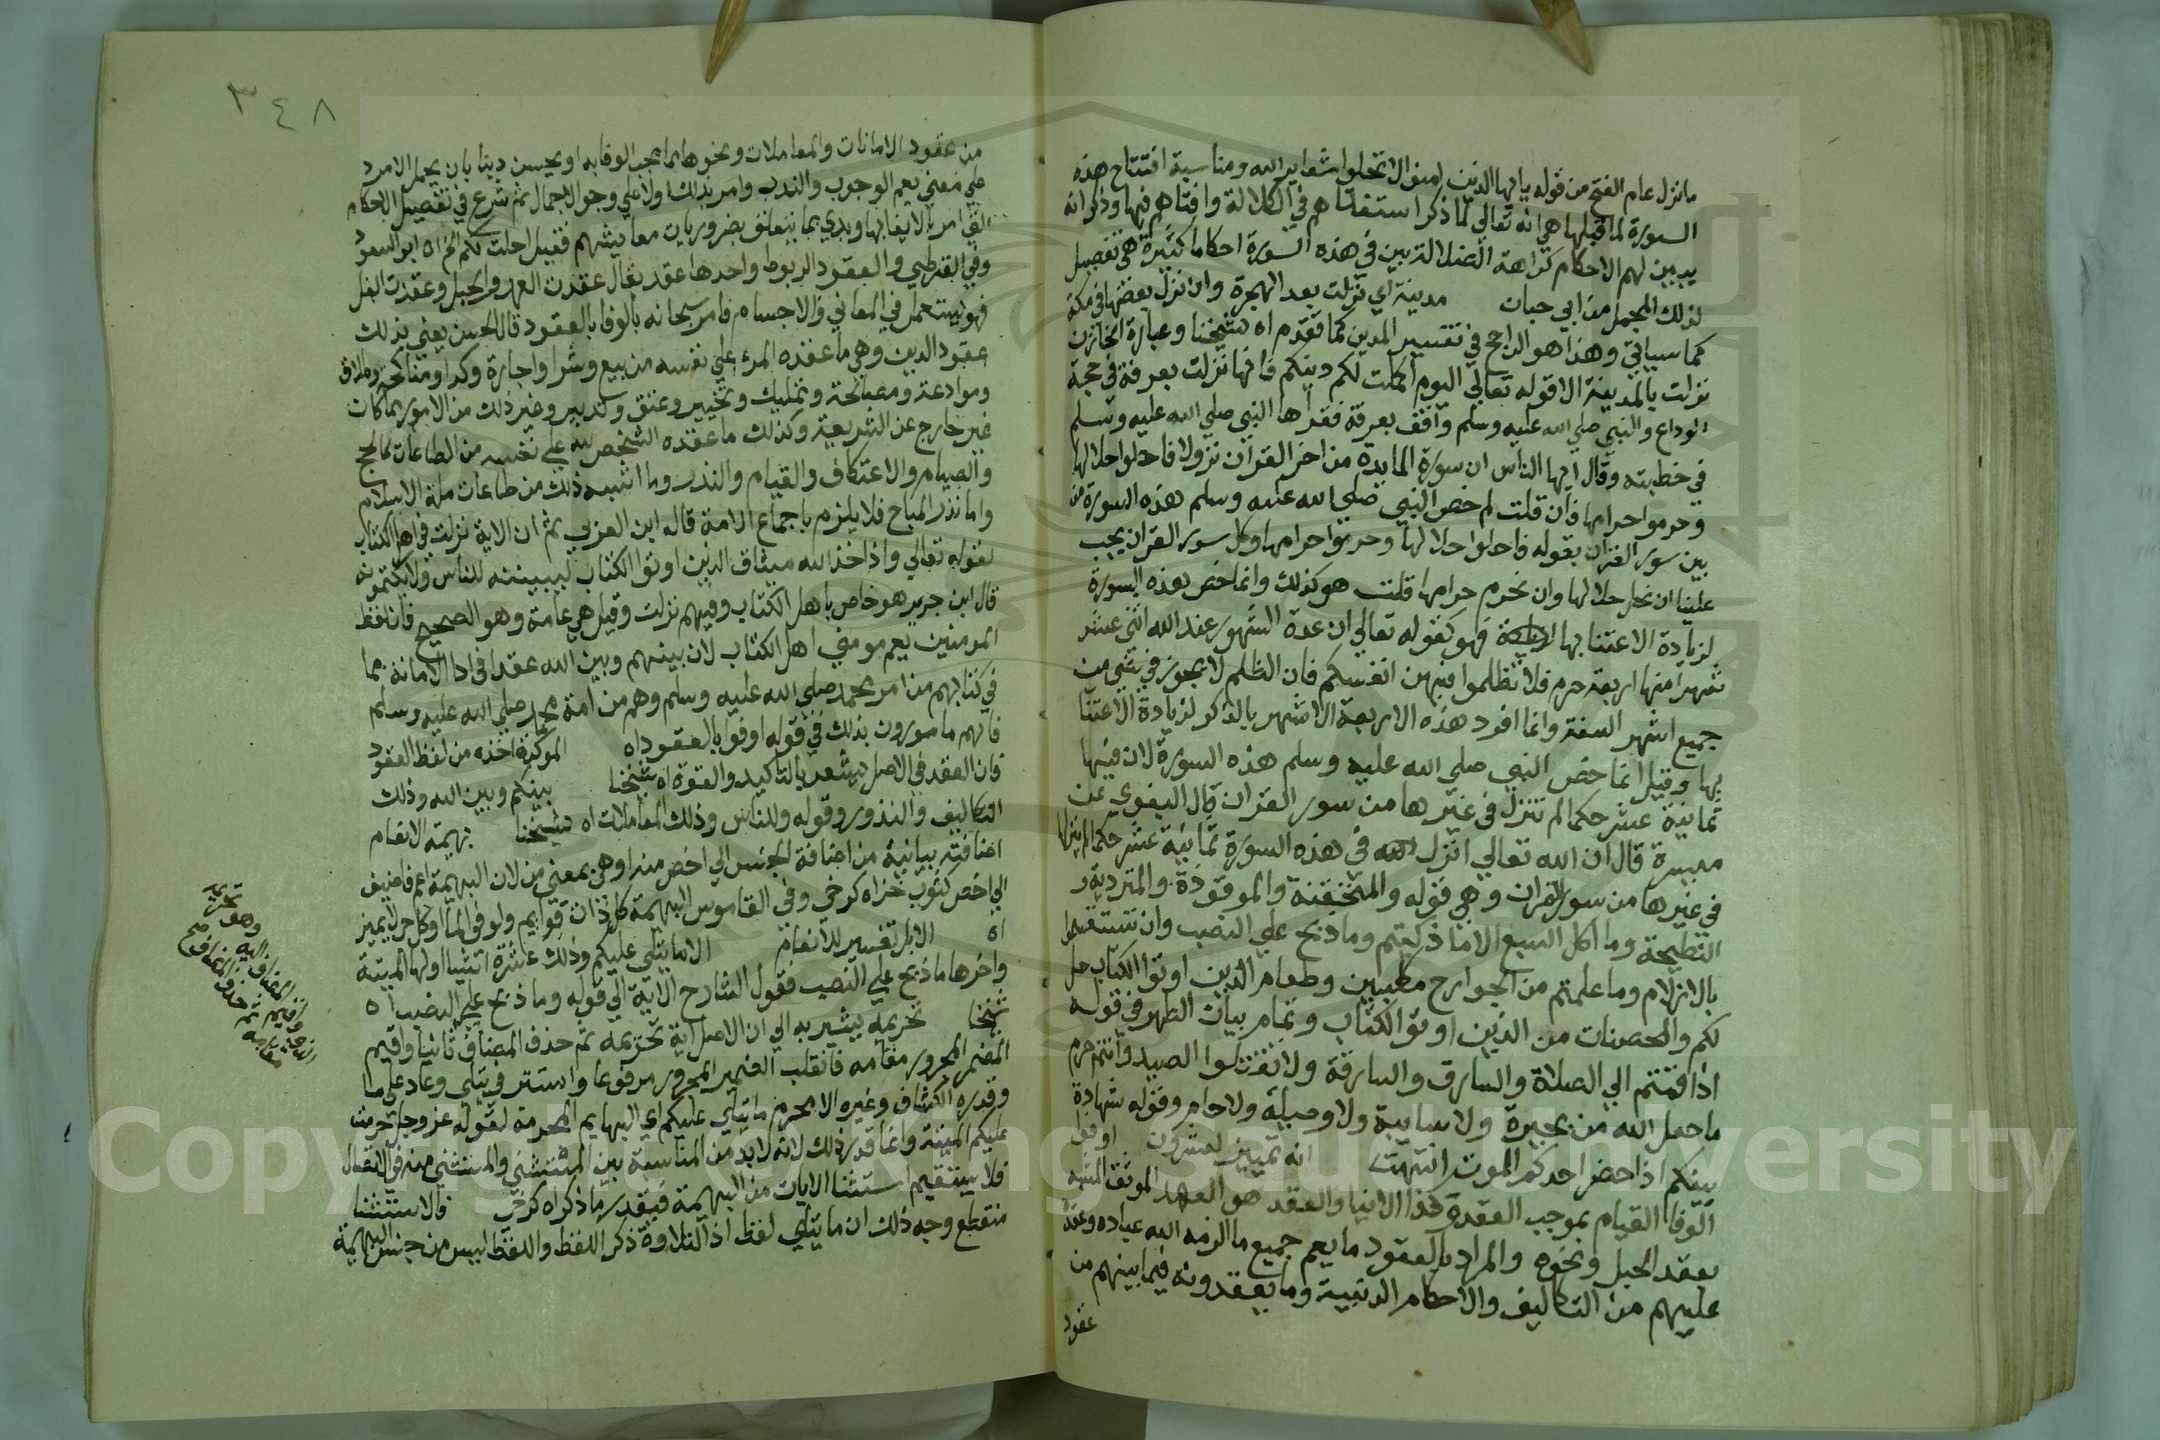 ما نزل عام الفتح من قوله يا يها الذين امنوا لا تحلوا شعاير الله ومناسبة افتتاح هذه
السورة لما قبلها هي انه تعالي لما ذكر استفتاهم في الكلالة وافتاهم فيها وذكر انه
يبين لهم الاحكام كراهة الضلال تبين في هذه السورة احكاما كثيرة هي تفصيل
لذلك المجمل من ابي حيان مدينة اي نزلت بعد الهجرة وان نزل بعضها في مكة
كما سياتي وهذا هو الراجح في تفسير المدني كما تقدم اه شيخنا وعبارة الخازن
نزلت بالمدينة الا قوله تعالي اليوم اكملت لكم دينكم فانها نزلت بعرفة في حجة
الوداع والنبي صلي الله عليه وسلم واقف بعرفة فقراها النبي صلي الله عليه وسلم
في خطبته وقال ايها الناس ان سورة المايدة من اخر القران نزولا فاحلوا حلالها
وحرموا حرامها فان قلت لم خص النبي صلي الله عليه وسلم هذه السورة من
بين سور القران بقوله فاحلوا حلالها وحرموا حرامها وكل سور القران يجب
علينا ان نحل حلالها وان نحرم حرامها قلت هو كذلك وانما خص هذه السورة
لزيادة الاعتنا بها فهو كقوله تعالي ان عدة الشهور عند الله اثني عشر
شهرا منها اربعة حرم فلا تظلموا فيهن انفسكم فان الظلم لا يجوز في شي من
جميع اشهر السنة وانما افرد هذه الاربعة الاشهر بالذكر لزيادة الاعتنا
بها وقيل انما خص النبي صلي الله عليه وسلم هذه السورة لان فيها
ثمانية عشر حكما لم تنزل في غيرها من سور القران قال البغوي عن
ميسرة قال ان الله تعالي انزل في هذه السورة ثمانية عشر حكما لم ينزلها
في غيرها من سور القران وهي قوله والمنخنقة والموقوذة والمتردية و
النطيحة وما اكل السبع الا ما ذكيتم وما ذبح علي النصب وان تستقسموا
بالازلام وما علمتم من الجوارح مكلبين وطعام الذين اوتوا الكتاب حل
لكم والمحصنات من الذين اوتوا الكتاب وتمام بيان الطهر في قوله
اذا قمتم الي الصلاة والسارق والسارقة ولا تقتلوا الصيد وانتم حرم
ما جعل الله من بحيرة ولا سايبة ولا وصيلة ولا حام وقوله شهادة
بينكم اذا حضر احدكم الموت انتهت انه تمييز لعشرون اوفوا
الوفا القيام بموجب العقد وكذا الايفا والعقد هو العهد الموثق المشبه
بعقد الحبل ونحوه والمراد بالعقود ما يعم جميع ما الزمه الله عباده وعقده
عليهم من التكاليف والاحكام الدينية وما يعقدونه فيما بينهم من
عقود
٣٤٨
من عقود الامانات والمعاملات ونحوها مما يجب الوفا به او يحسن دينا بان يحمل الامر د
علي معني يعم الوجوب والندب وامر بذلك ولا علي وجه الاجمال ثم شرع في تفصيل الاحكام
التي امر بالايفا بها وبدي بما يتعلق بضروريات معايشهم فقيل احلت لكم الخ اه ابو السعود
وفي القرطبي والعقود الربوط واحدها عقد يقال عقدت العهد والحبل وعقدت الغل
فهو يستعمل في المعاني والاجسام فامر سبحانه بالوفا بالعقود قال الحسن يعني بذلك
عقود الدين وهي ما عقده المرء علي نفسه من بيع وشرا واجارة وكرا ومناكحة وطلاق
وموادعة ومصالحة وتمليك وتخيير وعتق وتدبير وغير ذلك من الامور ما كان
غير خارج عن الشريعة وكذلك ما عقده الشخص لله علي نفسه من الطاعات كالحج
والصيام والاعتكاف والقيام والنذر وما اشبه ذلك من طاعات ملة الاسلام
واما نذر المباح فلا يلزم باجماع الامة قاله ابن العربي ثم ان الاية نزلت في اهل الكتاب
لقوله تعالي واذ اخذ الله ميثاق الذين اوتوا الكتاب ليبيننه للناس ولا يكتمونه
قال ابن جرير هو خاص باهل الكتاب وفيهم نزلت وقيل هي عامة وهو الصحيح فان لفظ
المومنين يعم مومني اهل الكتاب لان بينهم وبين الله عقدا في ادا الامانة مما
في كتابهم من امر محمد صلي الله عليه وسلم وهم من امة محمد صلي الله عليه وسلم
فانهم مامورون بذلك في قوله اوفوا بالعقود اه الموكدة اخذه من لفظ العقود
فان العقد في الاصل يشعر بالتاكيد والقوة اه شيخنا بينكم وبين الله وذلك
التكاليف والنذور وقوله والناس وذلك المعاملات اه شيخنا بهيمة الانعام
اضافته بيانية من اضافة الجنس الي اخص منه او هي بمعني من لان البهيمة اعم فاضيف
الي اخص كثوب خز اه كرخي وفي القاموس البهيمة كل ذات قوايم ولو في الما او كل حي لا يميز
اه الابل تفسير للانعام الا ما يتلي عليكم وذلك عشرة اشيا اولها الميتة
واخرها ما ذبح علي النصب فقول الشارح الاية الي قوله وما ذبح علي النصب اه
شيخنا تحريمه يشير به الي ان الاصل اية تحريمه ثم حذف المضاف ثانيا واقيم
المضمر المجرور مقامه فانقلب الضمير المجرور مرفوعا واستتر في يتلي وعاد علي ما
وقدره الكشاف وغيره الا محرم ما يتلي عليكم اي البهايم المحرمة لقوله عز وجل حرمت
عليكم الميتة وانما قدر ذلك لانه لا بد من المناسبة بين المستثني والمستثني منه في الاتصال
فلا يستقيم استثنا الايات من البهيمة فيقدر ما ذكر اه كرخي فالاستثنا
منقطع وجه ذلك ان ما يتلي لفظ اذ التلاوة ذكر اللفظ واللفظ ليس من جنس البهيمة
وهو تحريم
المضاف اليه
ثم حذف المضاف
مقامه
صح
Copyright © King Saud University